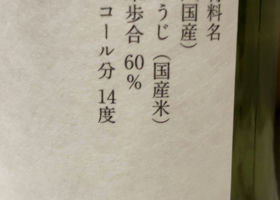 料名
国産)
うじ(国産米)
歩合 60%
コール分 14度